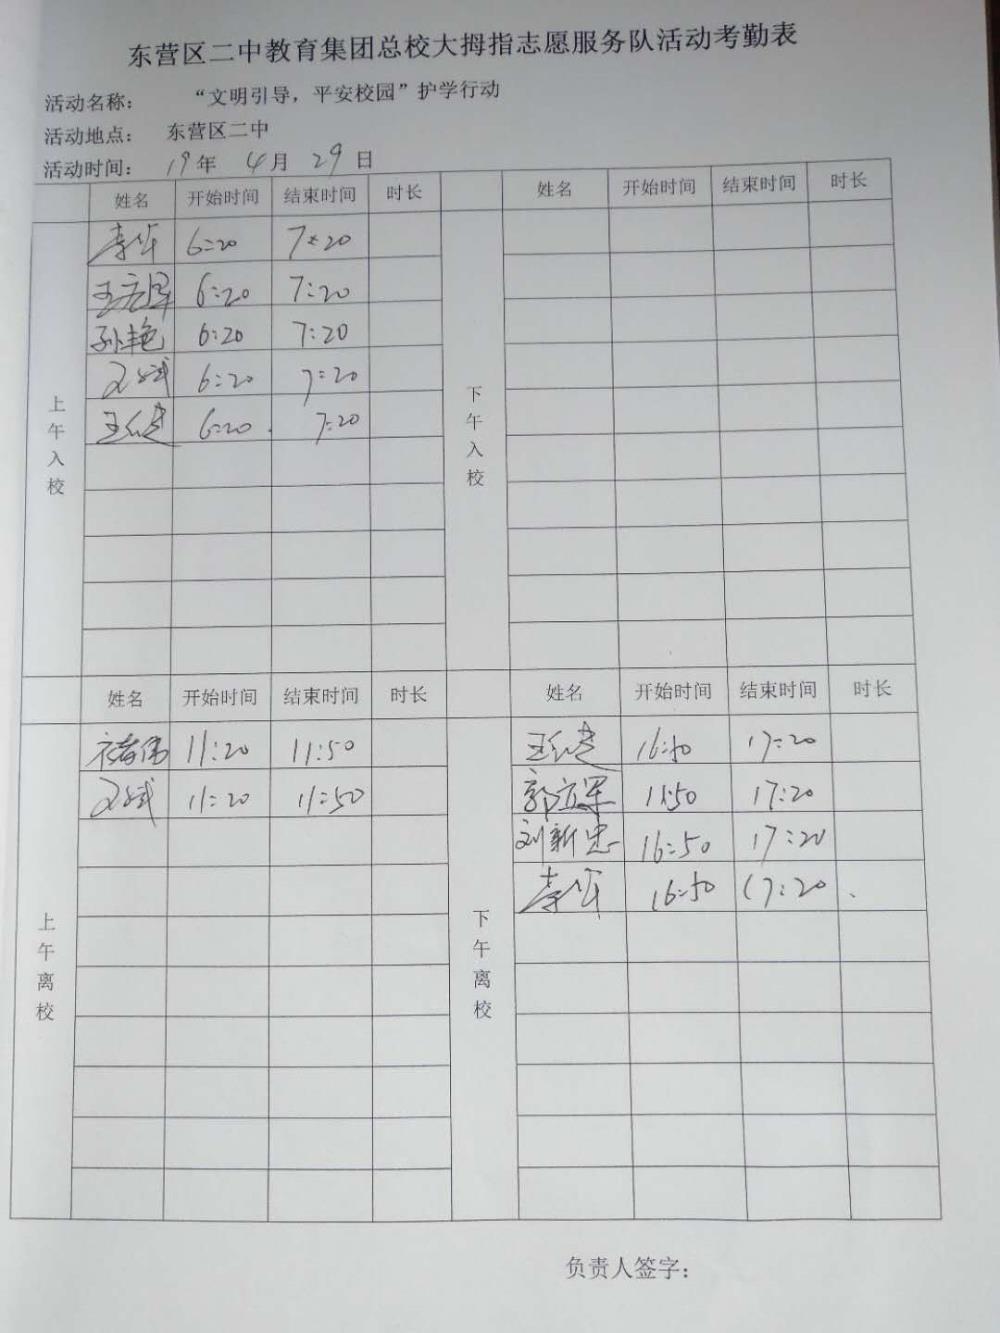 东营区二中教育集团总校大拇指志愿服务队活动考勤表
活动名称： “文明引导，平安校园”护学行动
活动地点： 东营区二中
活动时间： 19年 4月 29日
姓名 开始时间 结束时间 时长 姓名 开始时间 结束时间 时长
上午入校
6:20 7:20
6:20 7:20
孙艳 6:20 7:20
6:20 7:20
6:20 7:20
下午入校
姓名 开始时间 结束时间 时长 姓名 开始时间 结束时间 时长
上午离校
11:20 11:50
11:20 11:50
下午离校
16:50 17:20
郭立军 17:20
刘新忠 16:50 17:20
16:50 17:20
负责人签字：